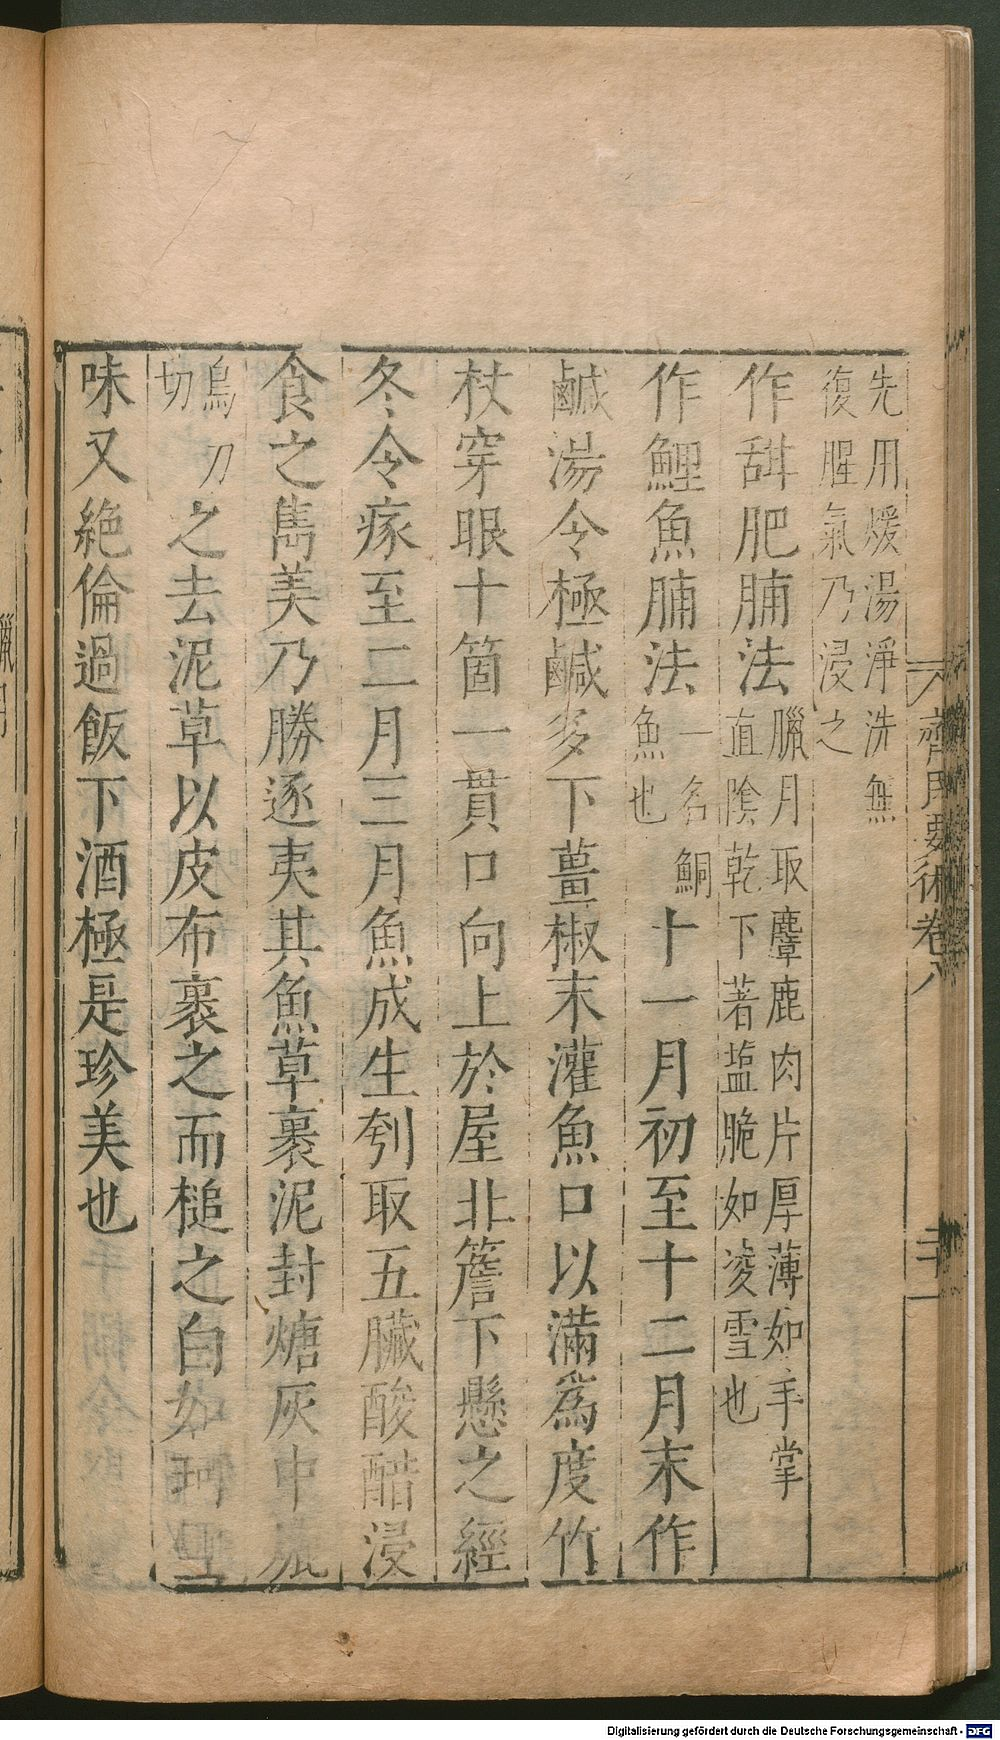 齊民要術卷八
先用煖湯淨洗無
復腥氣乃浸之
作甜肥腩法臘月取麞鹿肉片厚薄如手掌
直隂乾下著盐脆如凌雪也
作鯉魚腩法一名鮦
魚也十一月初至十二月末作
鹹湯令極鹹多下薑椒末灌魚口以滿爲度竹
杖穿眼十箇一貫口向上於屋北簷下懸之經
冬令瘃至二月三月魚成生刳取五臟酸醋浸
食之雋美乃勝逐夷其魚草裹泥封煻灰中爊
烏刀
切之去泥草以皮布裹之而槌之白如珂雪
味又絶倫過飯下酒極是珍美也
Digitalisierung gefördert durch die Deutsche Forschungsgemeinschaft - DFG